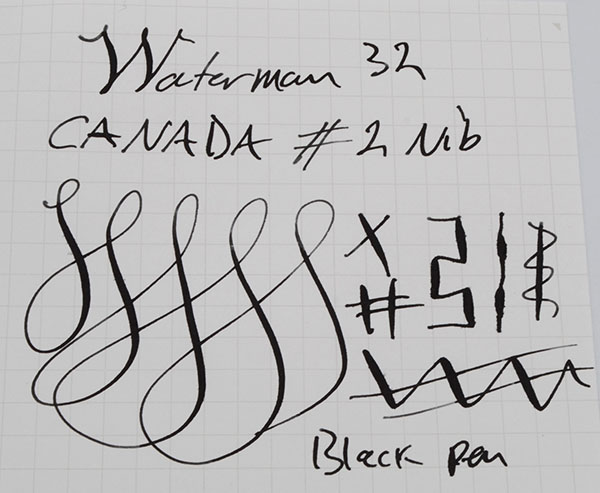 Waterman 32
CANADA #2 Nib
Black pen